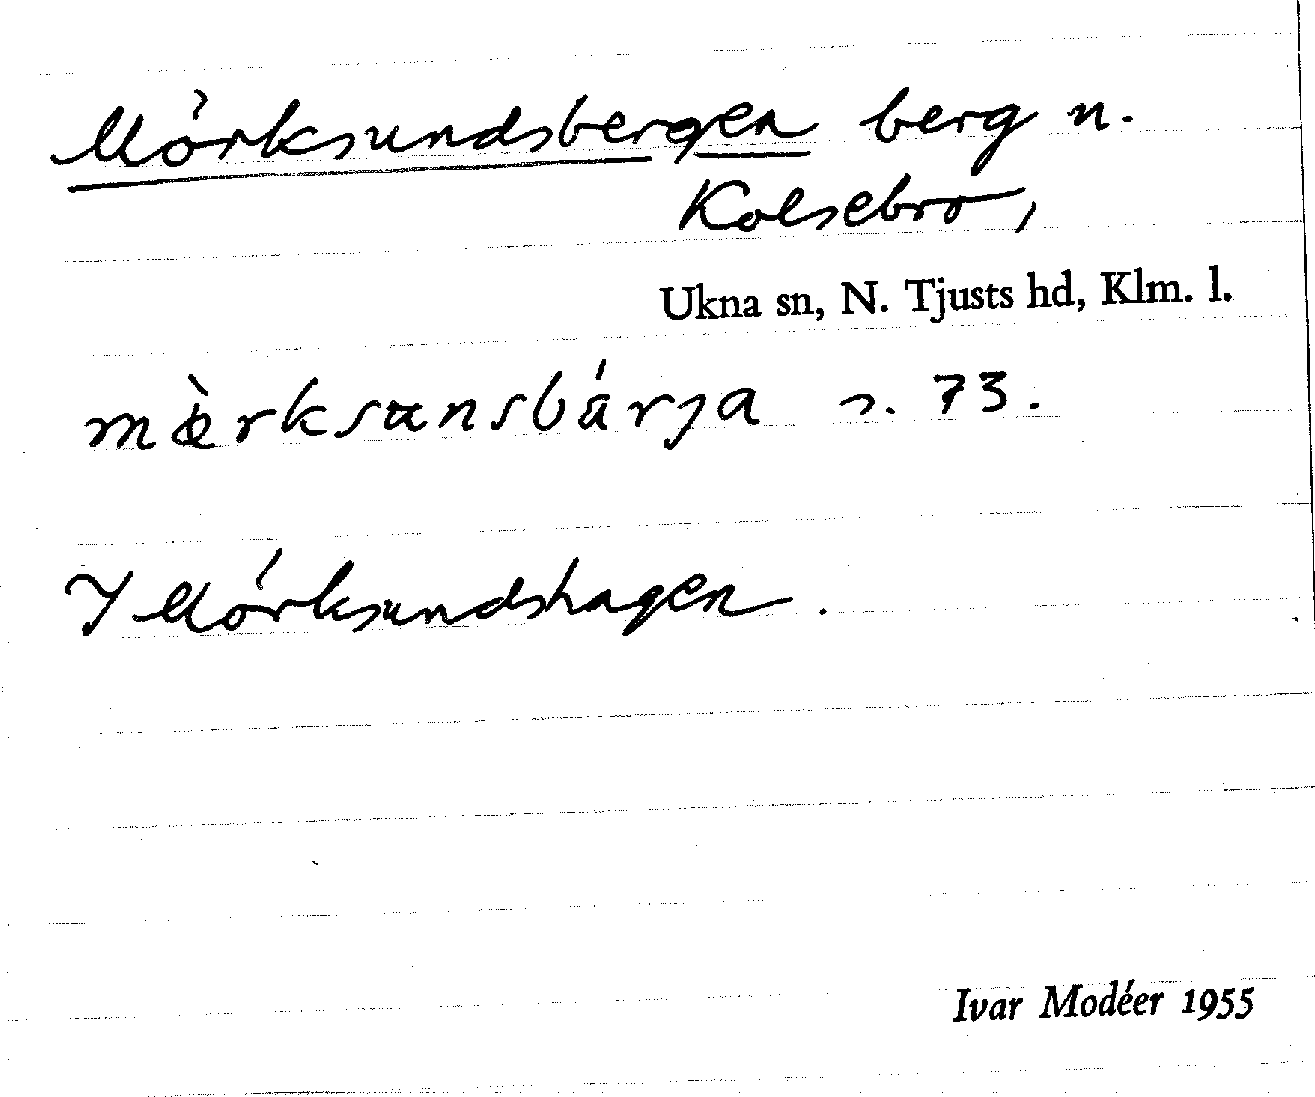 Mörksundsbergen berg n.
Kolsebro,
Ukna sn, N. Tjusts hd, Klm. l.
s. 73.
I Mörksundshagen.
Ivar Modéer 1955